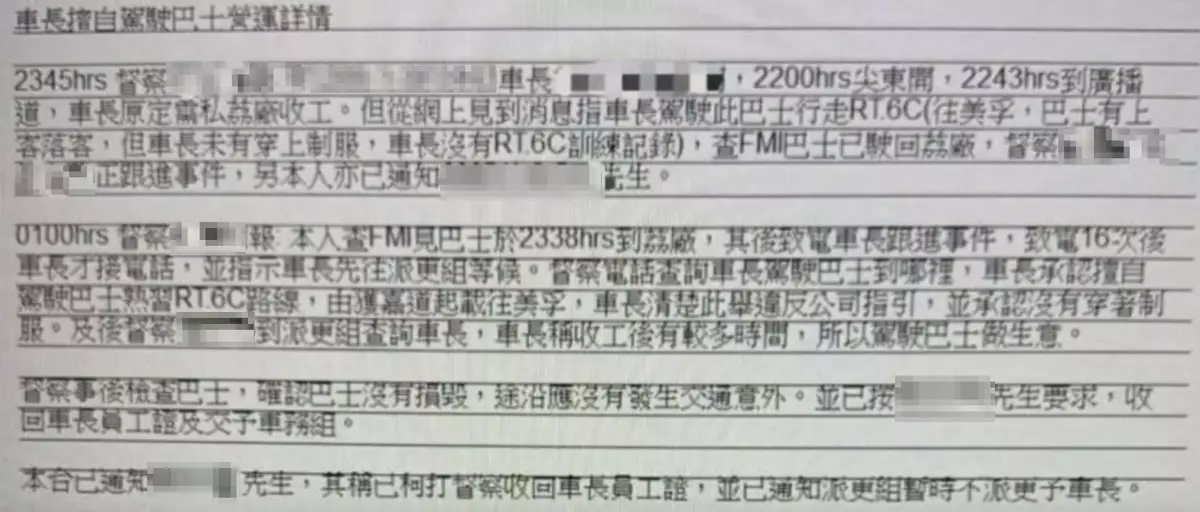 車長擅自駕駛巴士營運詳情
2345hrs 督察 車長 ，2200hrs尖東開，2243hrs到廣播
道，車長原定需私荔廠收工。但從網上見到消息指車長駕駛此巴士行走RT.6C(往美孚，巴士有上
客落客，但車長未有穿上制服，車長沒有RT.6C訓練記錄)，查FMI巴士已駛回荔廠，督察
正跟進事件，另本人亦已通知 先生。
0100hrs 督察 報: 本人查FMI見巴士於2338hrs到荔廠，其後致電車長跟進事件，致電16次後
車長才接電話，並指示車長先往派更組等候。督察電話查詢車長駕駛巴士到哪裡，車長承認擅自
駕駛巴士熟習RT.6C路線，由獲嘉道起載往美孚，車長清楚此舉違反公司指引，並承認沒有穿著制
服。及後督察 到派更組查詢車長，車長稱收工後有較多時間，所以駕駛巴士做生意。
督察事後檢查巴士，確認巴士沒有損毀，途沿應沒有發生交通意外。並已按 先生要求，收
回車長員工證及交予車務組。
本台已通知 先生，其稱已柯打督察收回車長員工證，並已通知派更組暫時不派更予車長。